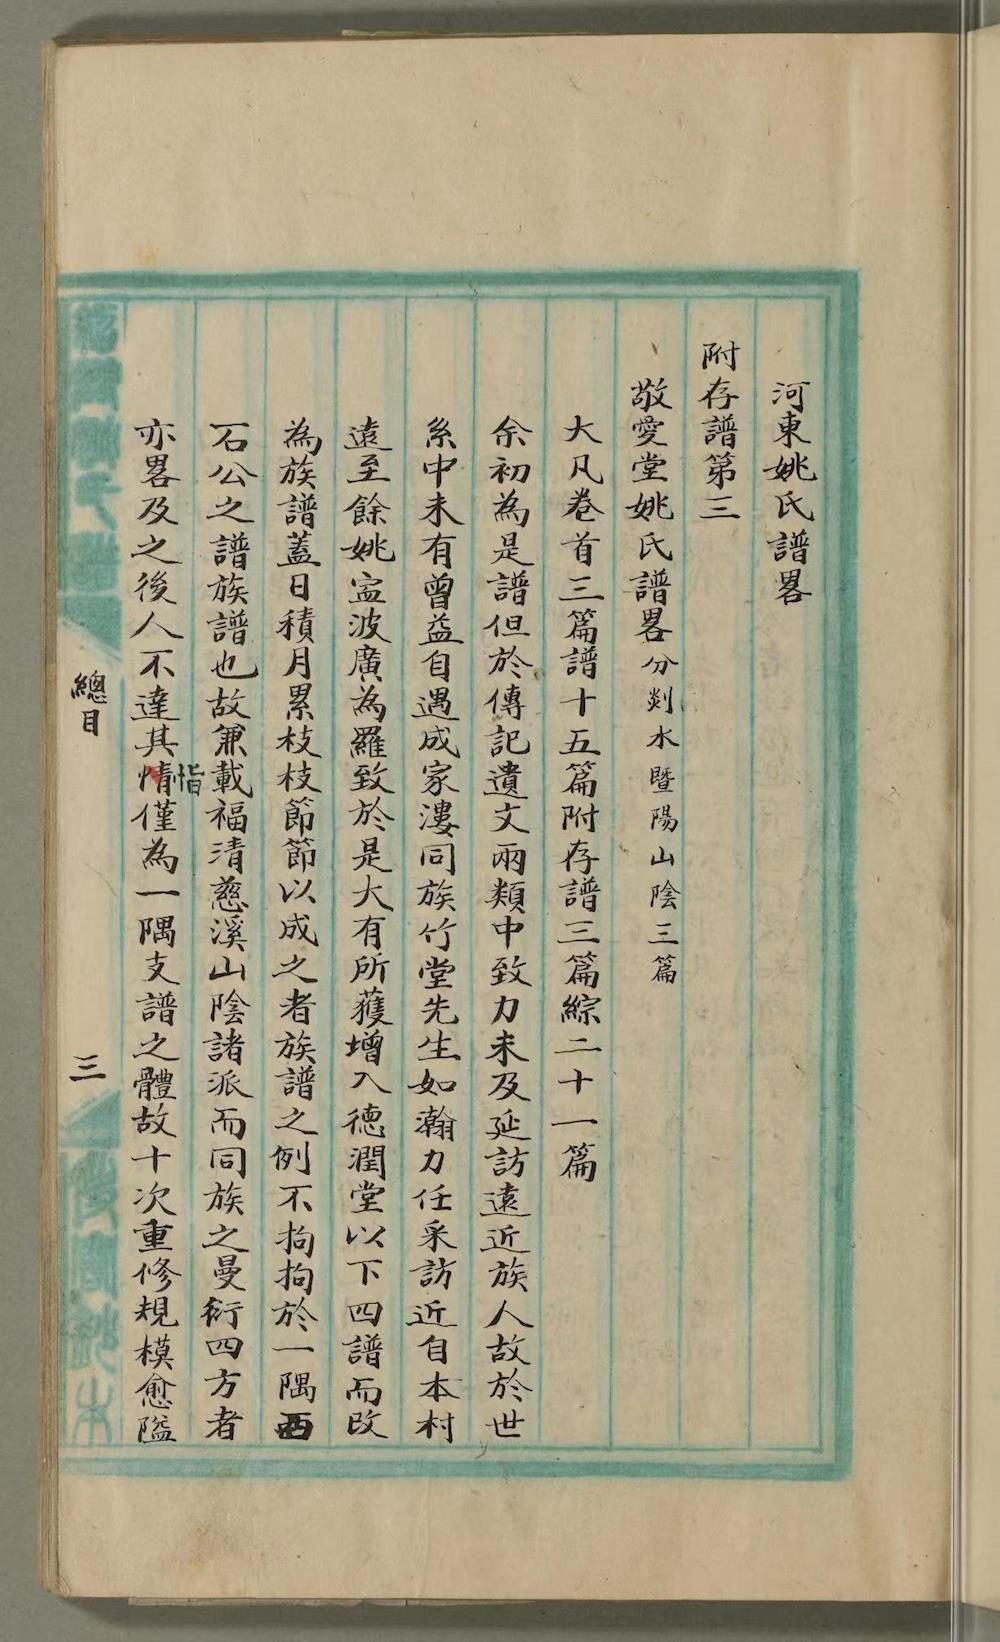 河東姚氏譜畧
附存譜第三
敬愛堂姚氏譜畧分剡水暨陽山陰三篇
大凡卷首三篇譜十五篇附存譜三篇綜二十一篇
余初為是譜但於傳記遺文兩類中致力未及延訪遠近族人故於世
系中未有曾益自遇成家漊同族竹堂先生如瀚力任采訪近自本村
遠至餘姚寍波廣為羅致於是大有所獲增入德潤堂以下四譜而改
為族譜蓋日積月累枝枝節節以成之者族譜之例不拘拘於一隅西
石公之譜族譜也故兼載福清慈溪山陰諸派而同族之曼衍四方者
亦畧及之後人不達其情僅為一隅支譜之體故十次重修規模愈隘
恉
總目
三